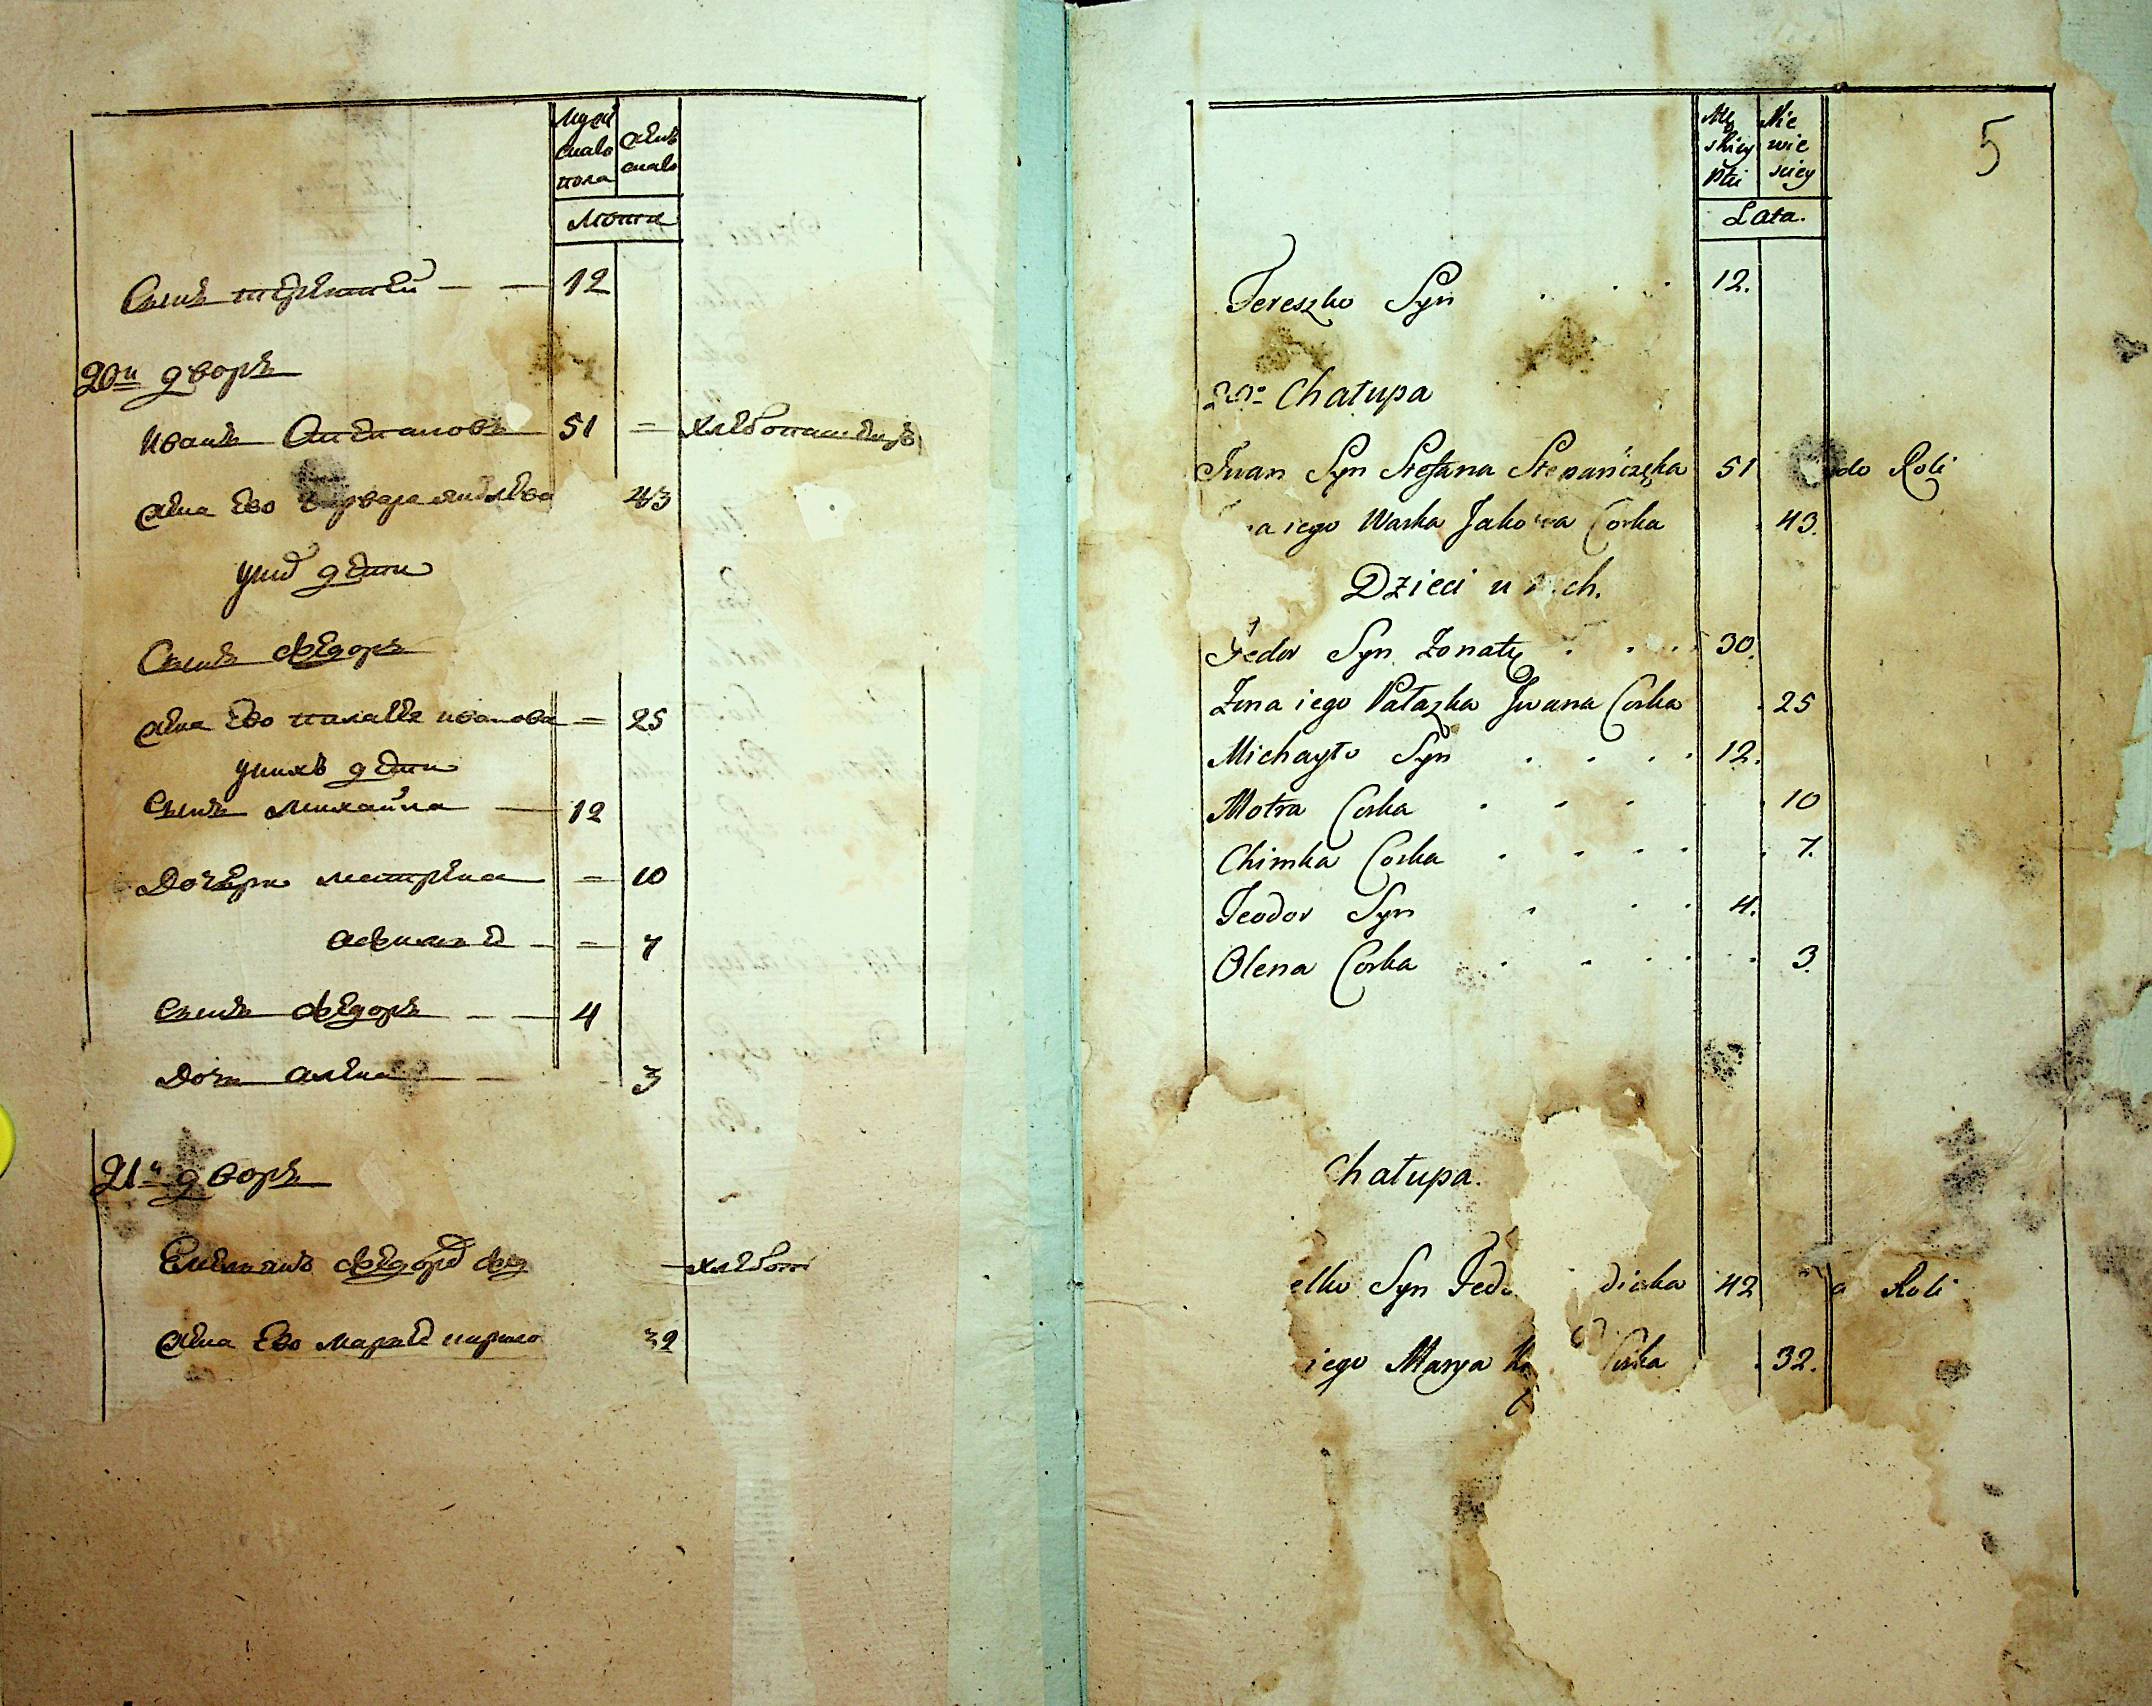 Мужескаго пола
Женскаго
Лѣты
Сынъ терентей — — 12
20й дворъ
Иванъ 51 — хлебопашецъ
Жена Ево варвара 43
у ниx дети
Сынъ Федоръ
Жена Ево палаге иванова — 25
у нихъ дети
Сынъ михайла — 12
Дочери матрена — 10
афимиа — — 7
Сынъ Федоръ — — 4
Дочь алена — 3
21й дворъ
Емельянъ Федоро — хлебоп
Жена Ево маря кирило 32
5
Męzkiey Płci
Niewieściey
Lata.
Tereszko Syn . . . 12.
20o Chałupa
Iwan Syn Stefana Stepańczuka 51 do Roli
na iego Warka Jakowa Corka . 43.
Dzieci u n ch.
Fedor Syn Żonaty . . . . 30.
Żona iego Pałazka Jwana Corka . 25
Michayło Syn . . . . 12.
Motra Corka . . . . 10
Chimka Corka . . . . . 7.
Teodor Syn . . . 4.
Olena Corka . . . . . 3.
Chałupa.
elko Syn Fedo diuka 42 a Roli
iego Marya K Corka . 32.